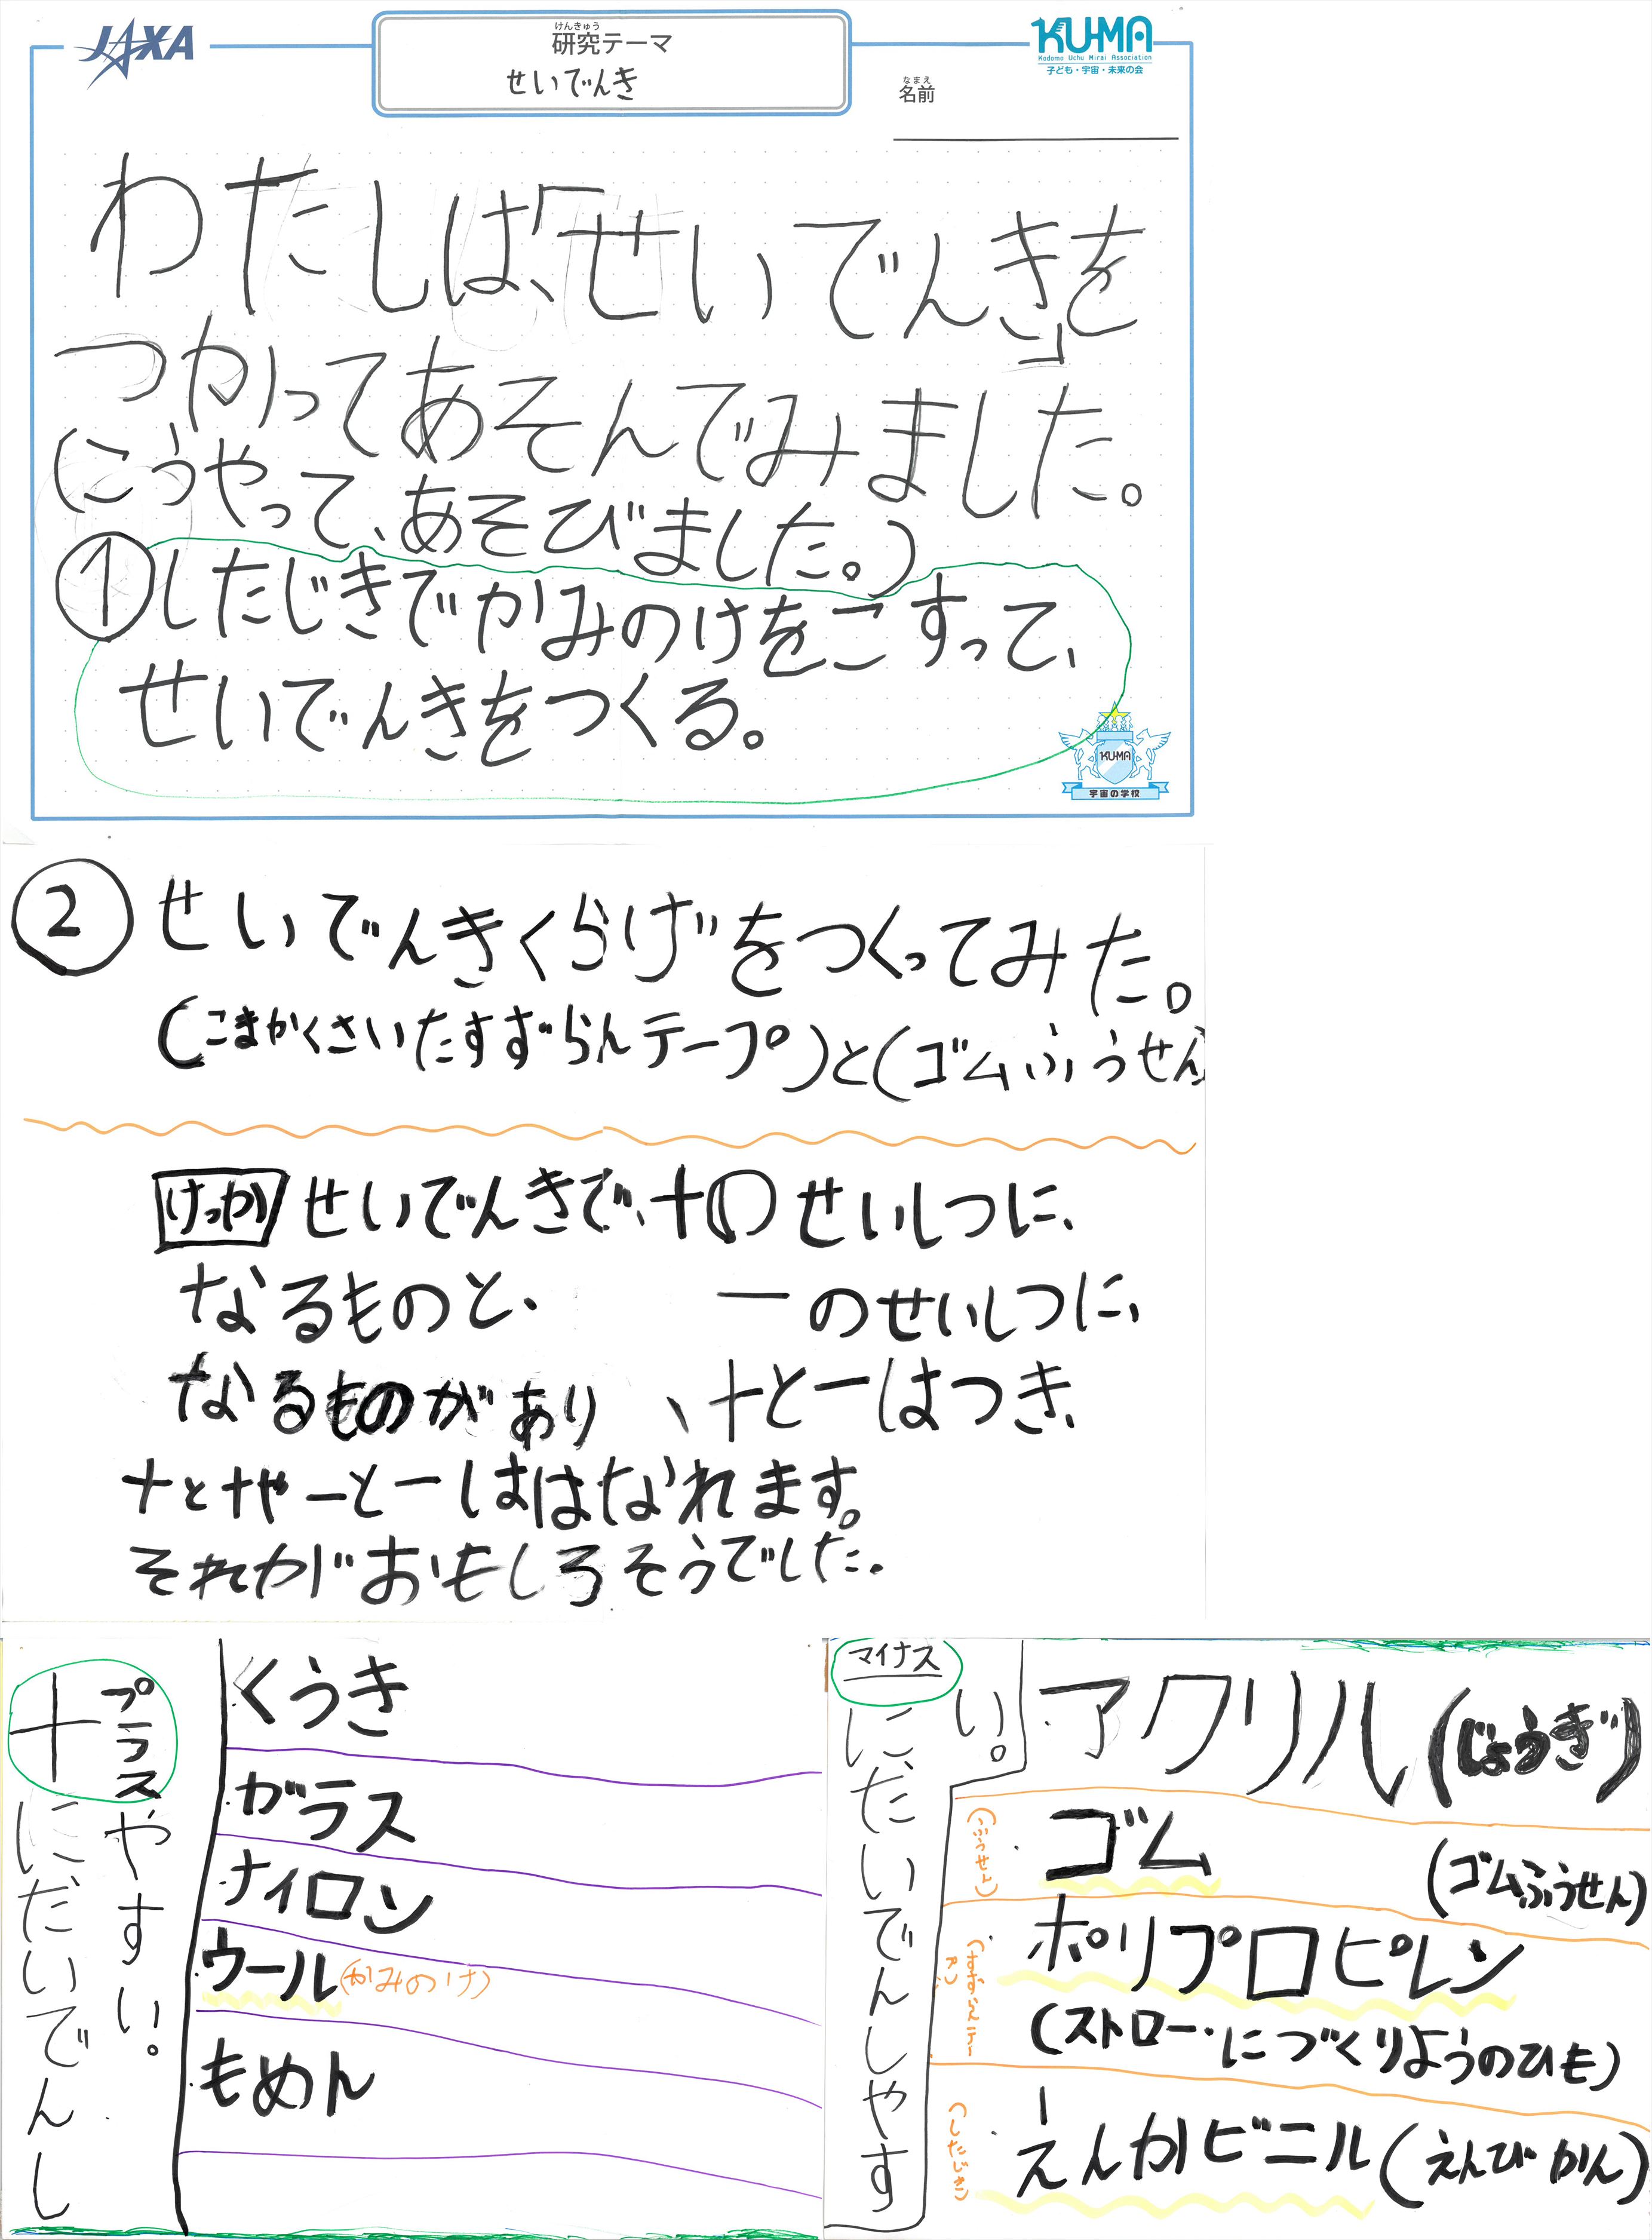 JAXA
けんきゅう
研究テーマ
せいでんき
KU-MA
Kodomo Uchu Mirai Association
子ども・宇宙・未来の会
なまえ
名前
わたしは、「せいでんき」を
つかってあそんでみました。
(こうやって、あそびました。)
①したじきでかみのけをこすって、
せいでんきをつくる。
KU-MA
宇宙の学校
②せいでんきくらげをつくってみた。
(こまかくさいたすずらんテープ)と(ゴムふうせん)
けっか せいでんきで、+のせいしつに、
なるものと、 ーのせいしつに、
なるものがあり、+とーはつき、
+と+やーとーははなれます。
それがおもしろそうでした。
プラス
+にだいでんし
やすい。
くうき
ガラス
ナイロン
ウール(かみのけ)
もめん
マイナス
にだいでんしやす
い。
アクリル(じょうぎ)
(ふうせん)
ゴム
(ゴムふうせん)
ポリプロピレン
(ストロー・にづくりようのひも)
(したじき)
えんかビニル(えんびかん)